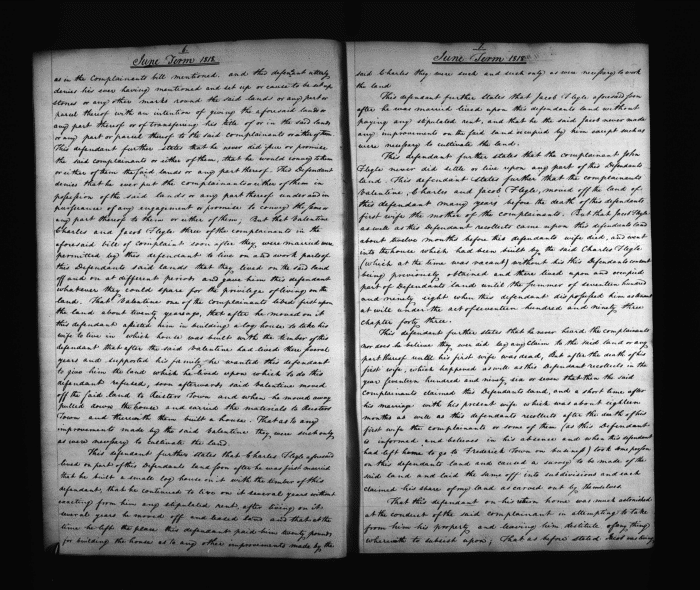 June Term 1818.
as in the Complainants bill mentioned. and this defendant utterly
denies his ever having mentioned and set up or cause to be set up
stones or any other marks round the said lands or any part or
parcel thereof with an intention of giving the aforesaid lands or
any part thereof or of transferring his title of or in the said lands
or any part or parcel thereof to the said complainants or either of them
This defendant further states that he never did give or promise
the said complainants or either of them, that he would convey to them
or either of them the said lands or any part thereof. This Defendant
denies that he ever put the complainants or either of them in
possession of the said lands or any part thereof under and in
pursuance of any engagement or promise to convey the same or
any part thereof to them or either of them, But that Valentine
Charles and Jacob Flygle three of the complainants in the
aforesaid bill of Complaint soon after they were married were
permitted by this defendant to live on and work parts of
this Defendants said lands that they lived on the said land
off and on at different periods and gave him this defendant
whatever they could spare for the privilige of living on the
land. That Valentine one of the complainants lived first upon
the land about twenty years ago, that after he moved on it
this defendant assisted him in building a log house to take his
wife to live in which house was built with the timber of this
defendant that after the said Valentine had lived there several
years and supported his family he wanted this defendant
to give him the land which he lived upon which to do this
defendant refused, soon afterwards said Valentine moved
off the said land to Taneytown and when he moved away
pulled down the house and carried the materials to
Town and therewith them built a house. That as to any
improvements made by the said Valentine they were such only
as were necessary to cultivate the land.
This defendant further states that Charles Flygle aforesaid
lived on part of this Defendants land soon after he was first married
that he built a small log house on it with the timber of this
defendant, that he continued to live on it several years without
exacting from him any stipulated rent. after living on it
several years he moved off and leased land and that at the
time he left the place this defendant paid him twenty pounds
for building the house as to any other improvements made by the
June Term 1818
said Charles they were such and such only as were necessary to work
the land
This defendant further states that Jacob Flygle aforesaid soon
after he was married lived upon this defendants land without
paying any stipulated rent, and that he the said Jacob never made
any improvements on the said land occupied by him except such as
were necessary to cultivate the land.
This defendant further states that the complainant John
Flygle never did settle or live upon any part of this Defendants
land. This defendant states further that the complainants
Valentine Charles and Jacob Flygle, moved off the land of
this defendant many years before the death of this defendants
first wife the mother of the complainants. But that Jacob Flygle
as well as this Defendant recollects came upon this defendants land
about twelve months before this defendants wife died, and went
into the house which had been built by the said Charles Flygle
(which at the time was vacant) without his this Defendants consent
being previously obtained and there lived upon and occupied
part of Defendants land until the summer of seventeen hundred
and ninety eight when this defendant dispossessed him as tenant
at will under the act of seventeen hundred and ninety three
chapter forty three.
This defendant further states that he never heard the complainants
nor does he believe they ever did lay any claim to the said land or any
part thereof until his first wife was dead, But after the death of his
first wife, which happened as well as this Defendant recollects in the
year seventeen hundred and ninety six or seven that then the said
complainants claimed this Defendants land, and a short time after
his marriage with his present wife which was about eighteen
months as well as this defendants recollects after the death of his
first wife the complainants or some of them (as this Defendant
is informed and believes in his absence and when this defendant
had left home to go to Frederick Town on business) took possession
on this defendants land and caused a survey to be made of the
said land and laid the same off into subdivisions and each
claimed his share of my land as carved out by themselves
That this defendant on his return home was much astonished
at the conduct of the said complainant in attempting to take
from him his property and leaving him destitute of any thing
wherewith to subsist upon; That as before stated Jacob